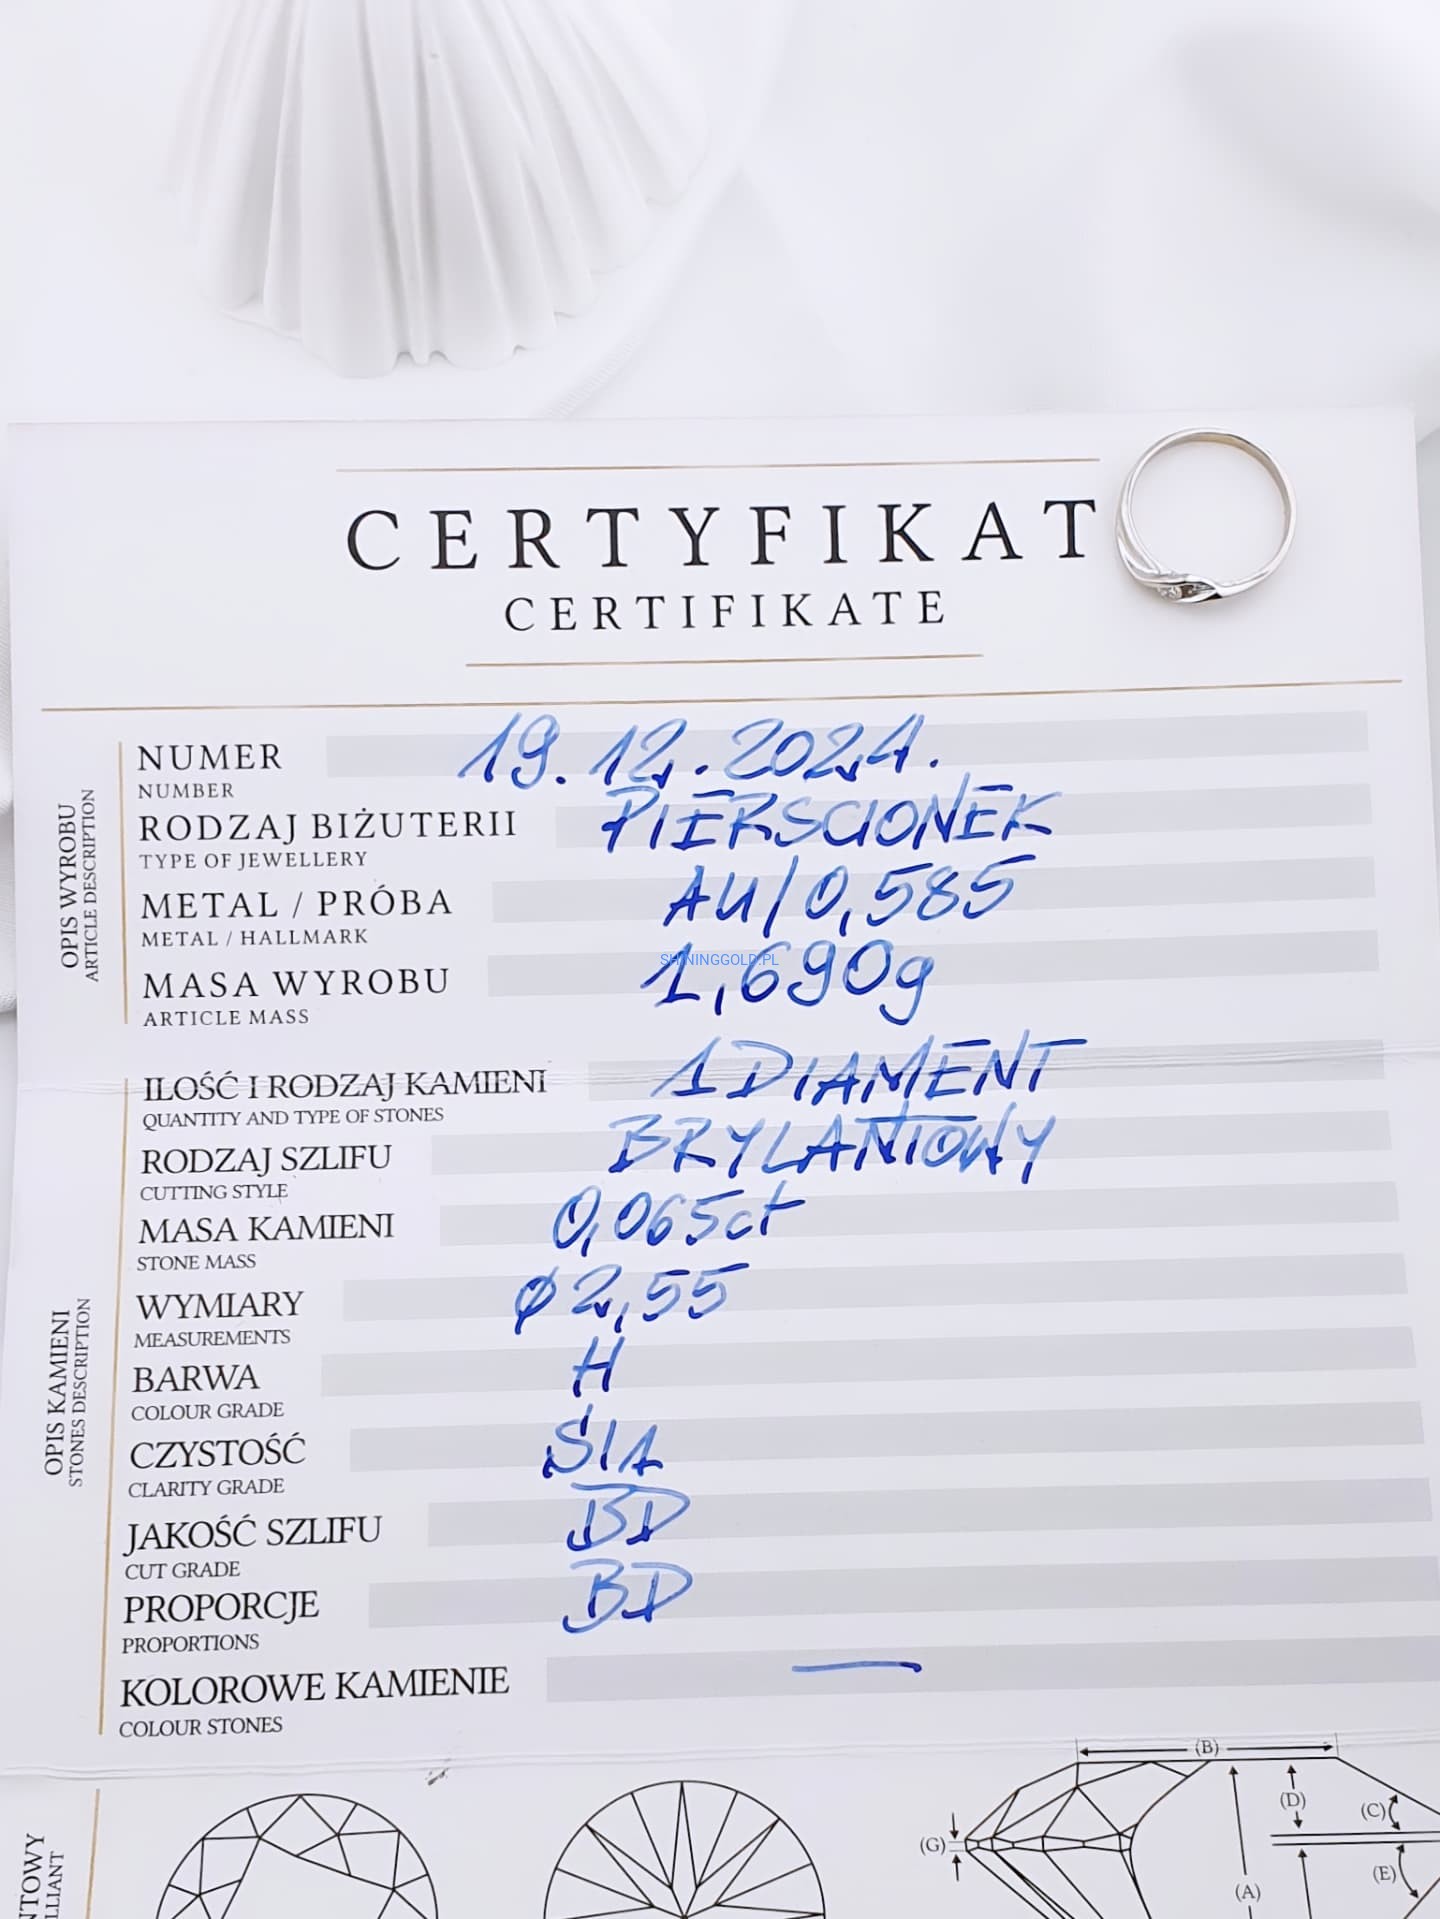 CERTYFIKAT
CERTIFIKATE
OPIS WYROBU
ARTICLE DESCRIPTION
NUMER 19.12.2024.
NUMBER
RODZAJ BIŻUTERII PIERSCIONEK
TYPE OF JEWELLERY
METAL / PRÓBA AU/0,585
METAL / HALLMARK
SHININGGOLD.PL
MASA WYROBU 1,690g
ARTICLE MASS
OPIS KAMIENI
STONES DESCRIPTION
ILOŚĆ I RODZAJ KAMIENI 1 DIAMENT
QUANTITY AND TYPE OF STONES
RODZAJ SZLIFU BRYLANTOWY
CUTTING STYLE
MASA KAMIENI 0,065ct
STONE MASS
WYMIARY ϕ2,55
MEASUREMENTS
BARWA H
COLOUR GRADE
CZYSTOŚĆ SI1
CLARITY GRADE
JAKOŚĆ SZLIFU BD
CUT GRADE
PROPORCJE BD
PROPORTIONS
KOLOROWE KAMIENIE —
COLOUR STONES
NTOWY
LLIANT
(B)
(D)
(C)
(G)
(E)
(A)